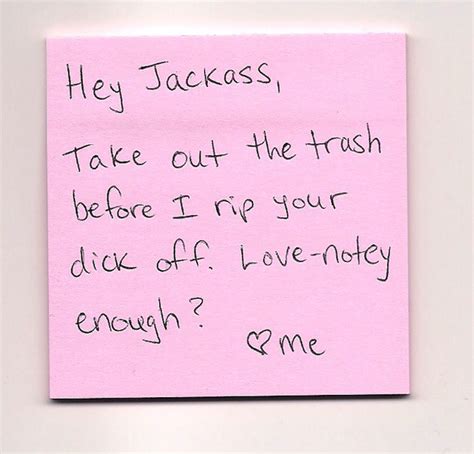 Hey Jackass,
Take out the trash
before I rip your
dick off. Love-notey
enough?
♡ me